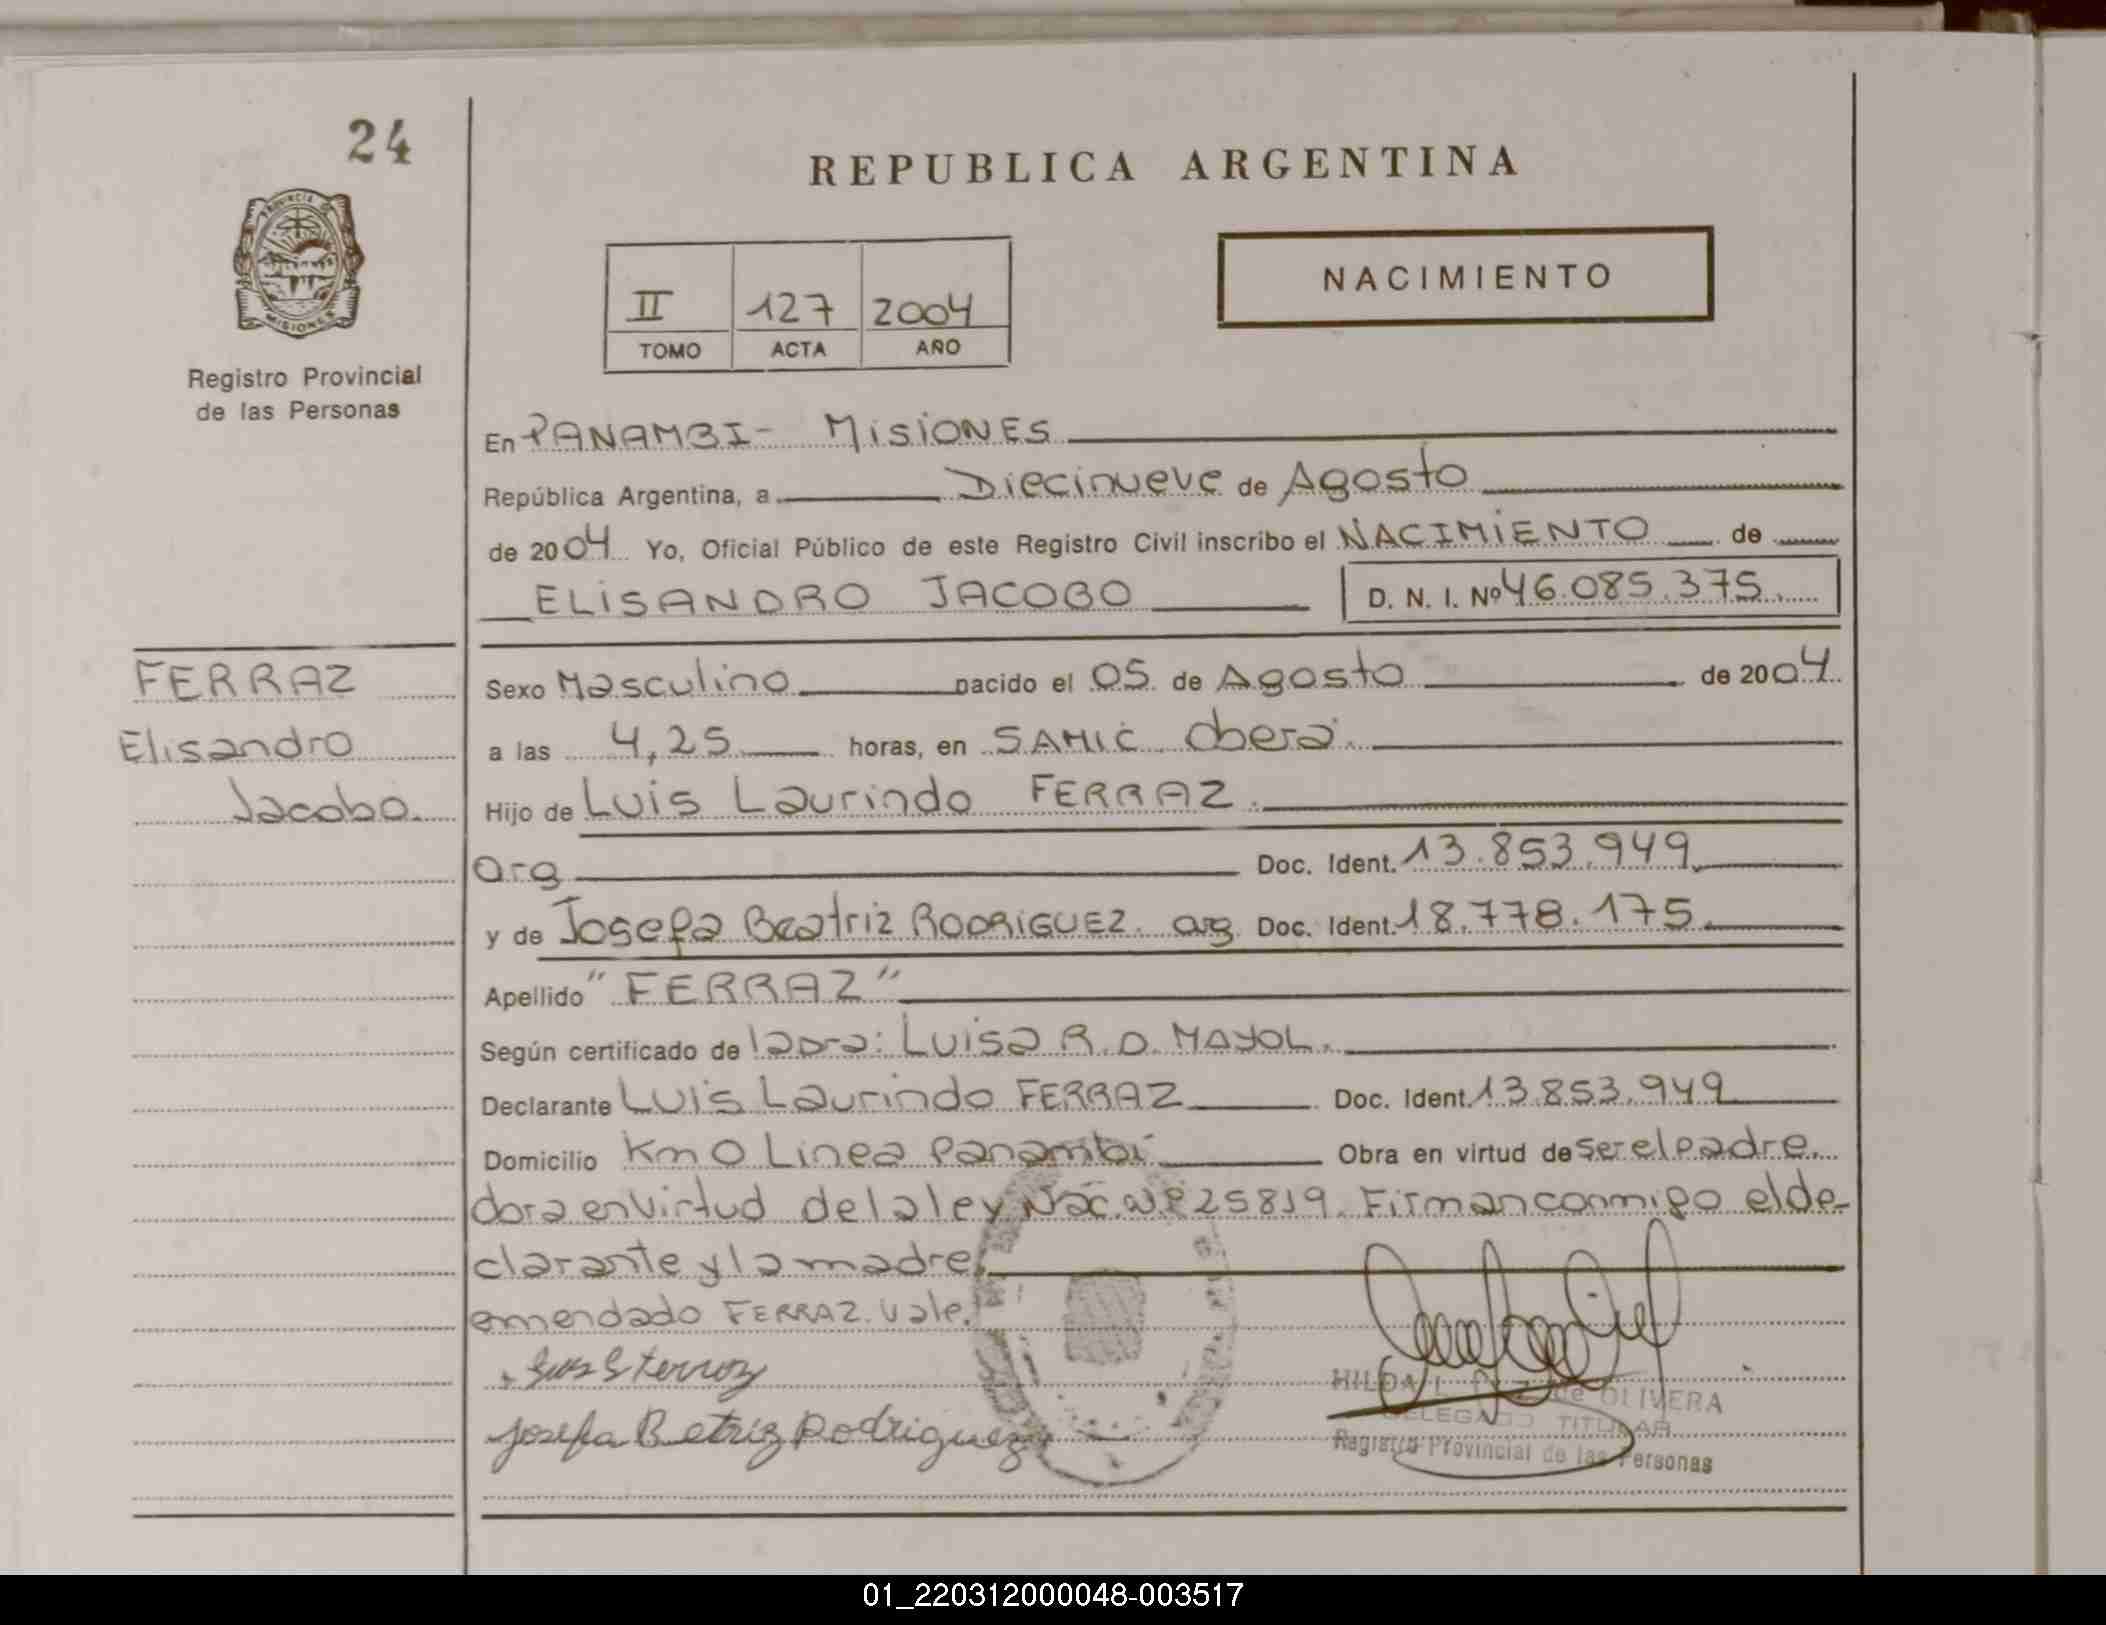 24
PROVINCIA DE
MISIONES
Registro Provincial
de las Personas
REPUBLICA ARGENTINA
II 127 2004
TOMO ACTA AÑO
NACIMIENTO
En PANAMBI - MISIONES
República Argentina, a Diecinueve de Agosto
de 2004 Yo, Oficial Público de este Registro Civil inscribo el NACIMIENTO de
ELISANDRO JACOBO D. N. I. Nº 46.085.375.
FERRAZ
Elisandro
Jacobo.
Sexo Masculino nacido el 05 de Agosto de 2004.
a las 4,25 horas, en SAMIC Oberá.
Hijo de Luis Laurindo FERRAZ.
arg Doc. Ident. 13.853.949
y de Josefa Beatriz RODRIGUEZ. arg Doc. Ident. 18.778.175
Apellido "FERRAZ"
Según certificado de la Dra: Luisa R. O. MAYOL.
Declarante Luis Laurindo FERRAZ Doc. Ident. 13.853.949
Domicilio Km 0 Linea Panambí Obra en virtud de ser el padre.
dora en virtud de la ley Nac. Nº 25819. Firman conmigo el de-
clarante y la madre.
emendado FERRAZ. Vale.
Josefa Betriz Rodriguez
HILDA L. de OLIVERA
DELEGADO TITULAR
Registro Provincial de las Personas
01_220312000048-003517